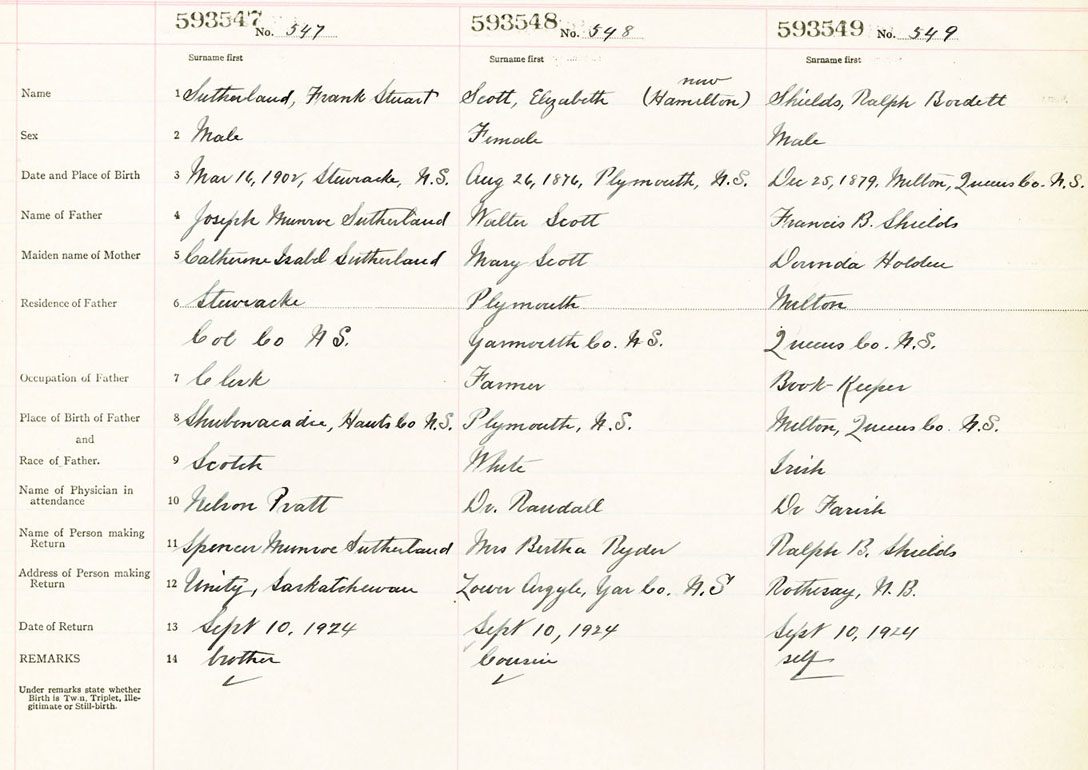 593547 No. 547 593548 No. 548 593549 No. 549
Surname first Surname first Surname first
now
Name 1 Sutherland, Frank Stuart Scott, Elizabeth (Hamilton) Shields, Ralph Bordett
Sex 2 Male Female Male
Date and Place of Birth 3 Mar 16, 1902, Stewiacke, N.S. Aug 26, 1876, Plymouth, N.S. Dec 25, 1879, Milton, Queens Co. N.S.
Name of Father 4 Joseph Munroe Sutherland Walter Scott Francis B. Shields
Maiden name of Mother 5 Catherine Isabel Sutherland Mary Scott Dorinda Holden
Residence of Father 6 Stewiacke Plymouth Milton
Col Co N S. Yarmouth Co. N S. Queens Co. N.S.
Occupation of Father 7 Clerk Farmer Book-Keeper
Place of Birth of Father 8 Shubenacadie, Hants Co N.S. Plymouth, N.S. Milton, Queens Co. N.S.
and
Race of Father. 9 Scotch White Irish
Name of Physician in
attendance 10 Nelson Pratt Dr. Randall Dr Farish
Name of Person making
Return 11 Spencer Munroe Sutherland Mrs Bertha Ryder Ralph B. Shields
Address of Person making
Return 12 Unity, Saskatchewan Lower Argyle, Yar Co. N.S Rothesay, N.B.
Date of Return 13 Sept 10, 1924 Sept 10, 1924 Sept 10, 1924
REMARKS 14 brother Cousin self
Under remarks state whether
Birth is Twin, Triplet, Ille-
gitimate or Still-birth.